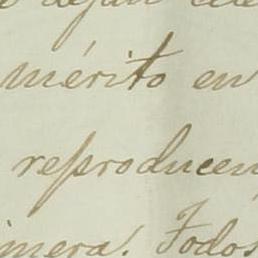 dejan
mérito en
reproducen
imera. Todos